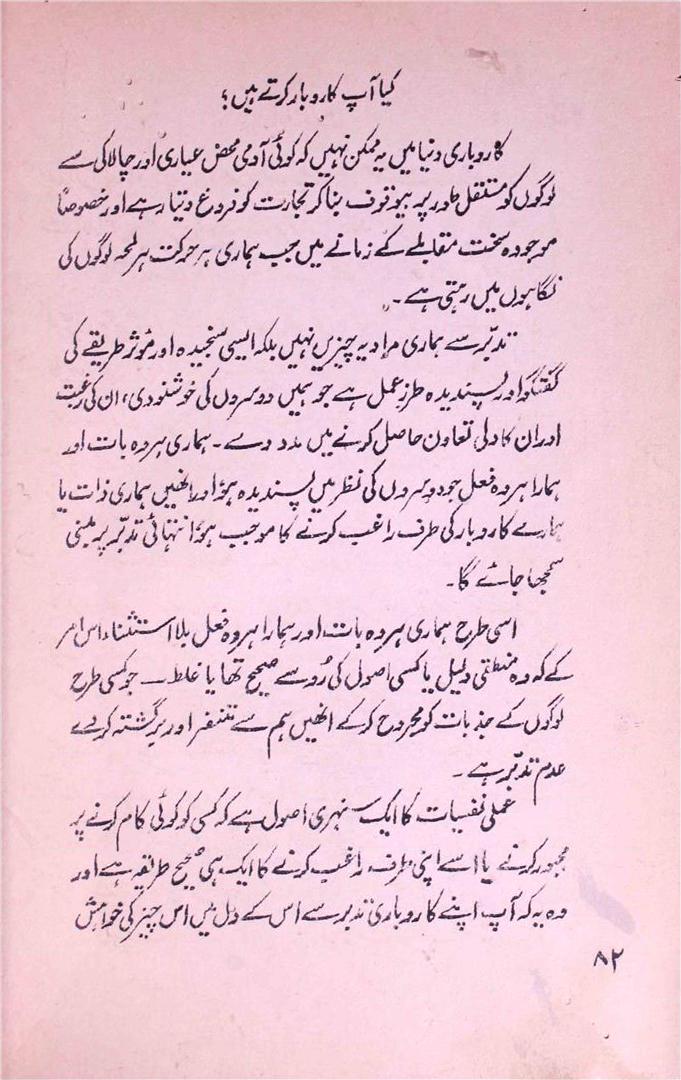 کیا آپ کاروبار کرتے ہیں؛
کاروباری دنیا میں یہ ممکن نہیں کہ کوئی آدمی محض عیاری اور چالاکی سے
لوگوں کو مستقل طور پر بیوقوف بنا کر تجارت کو فروغ دیتا رہے اور خصوصاً
موجودہ سخت مقابلے کے زمانے میں جب ہماری ہر حرکت ہر لمحہ لوگوں کی
نگاہوں میں رہتی ہے۔
تدبّر سے ہماری مراد یہ چیزیں نہیں بلکہ ایسی سنجیدہ اور مؤثر طریقے کی
گفتگو اور پسندیدہ طرزِ عمل ہے جو ہمیں دوسروں کی خوشنودی، ان کی رغبت
اور ان کا دلی تعاون حاصل کرنے میں مدد دے۔ ہماری ہر وہ بات اور
ہمارا ہر وہ فعل جو دوسروں کی نظر میں پسندیدہ ہو اور انھیں ہماری ذات یا
ہمارے کاروبار کی طرف راغب کرنے کا موجب ہو انتہائی تدبّر پر مبنی
سمجھا جائے گا۔
اسی طرح ہماری ہر وہ بات اور ہمارا ہر وہ فعل بلا استثناء اس امر
کے کہ وہ منطقی دلیل یا کسی اصول کی رُو سے صحیح تھا یا غلط — جو کسی طرح
لوگوں کے جذبات کو مجروح کر کے انھیں ہم سے متنفر اور برگشتہ کر دے
عدم تدبّر ہے۔
عملی نفسیات کا ایک سنہری اصول ہے کہ کسی کو کوئی کام کرنے پر
مجبور کرنے یا اسے اپنی طرف راغب کرنے کا ایک ہی صحیح طریقہ ہے اور
وہ یہ کہ آپ اپنے کاروباری تدبر سے اس کے دل میں اس چیز کی خواہش
۸۲